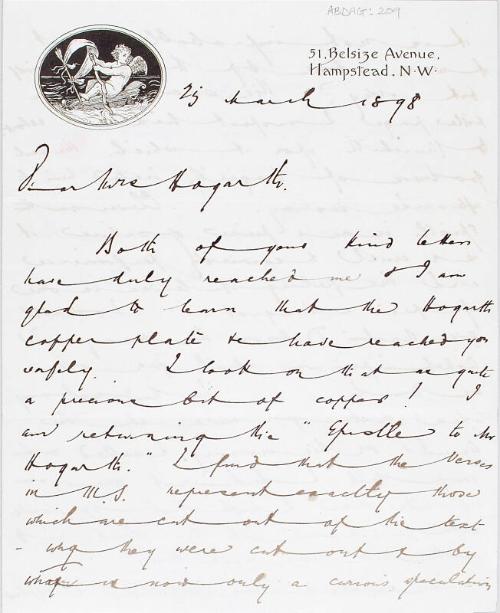 ABDAG: 209
51, Belsize Avenue,
Hampstead. N.W.
25 March 1898
Dear Mrs Hogarth.
Both of your kind letters
have duly reached me & I am
glad to learn that the Hogarth
copper plate &c have reached you
safely. I look on that as quite
a precious bit of copper! I
am returning the "Epistle to Mr
Hogarth." I find that the Verses
in M.S. represent exactly those
which are cut out of the text
- why they were cut out & by
is now only a curious speculation